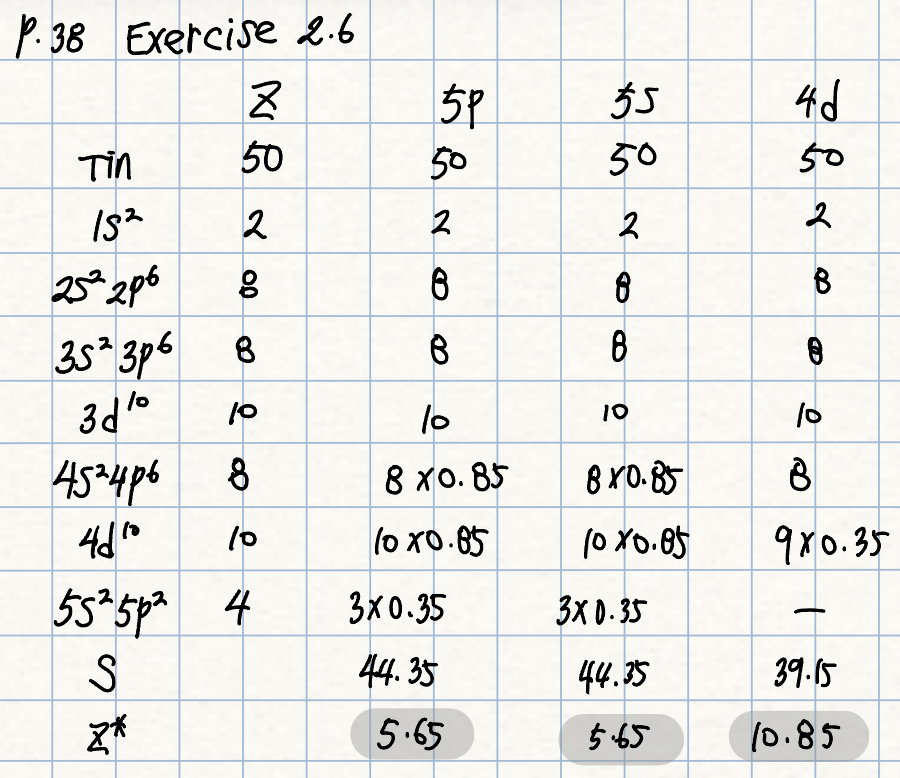 P. 38 Exercise 2.6
Z 5p 5s 4d
Tin 50 50 50 50
1s² 2 2 2 2
2s² 2p⁶ 8 8 8 8
3s² 3p⁶ 8 8 8 8
3d¹⁰ 10 10 10 10
4s²4p⁶ 8 8 x0.85 8x0.85 8
4d¹⁰ 10 10 x0.85 10 x0.85 9x0.35
5s²5p² 4 3x0.35 3x0.35 —
S 44.35 44.35 39.15
Z* 5.65 5.65 10.85